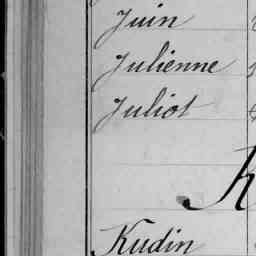 Juin
Julienne
Juliot
K
Kudin